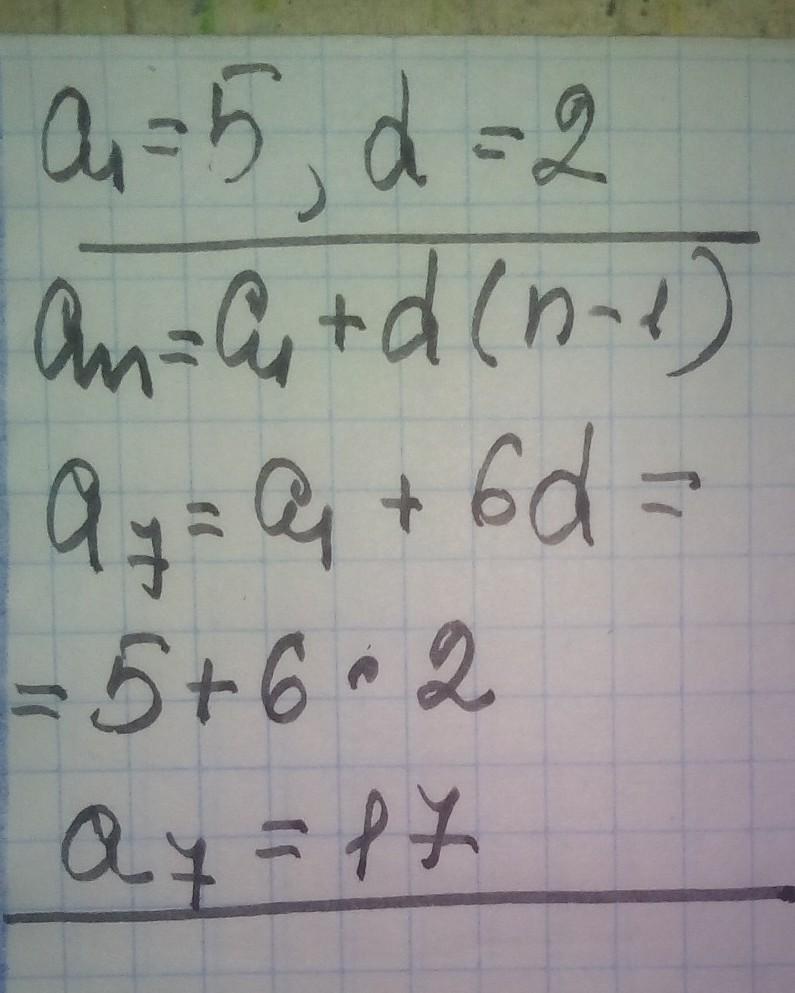 a₁ = 5, d = 2
aₙ = a₁ + d(n-1)
a₇ = a₁ + 6d =
= 5 + 6 · 2
a₇ = 17